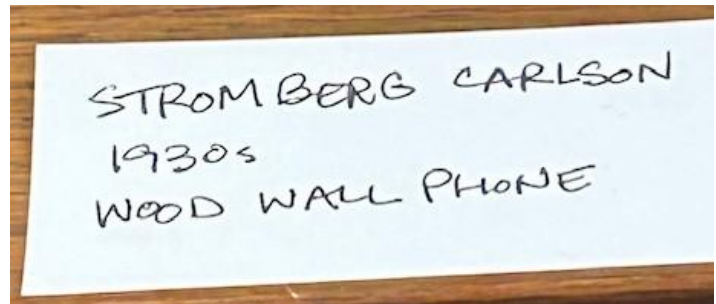 STROMBERG CARLSON
1930s
WOOD WALL PHONE